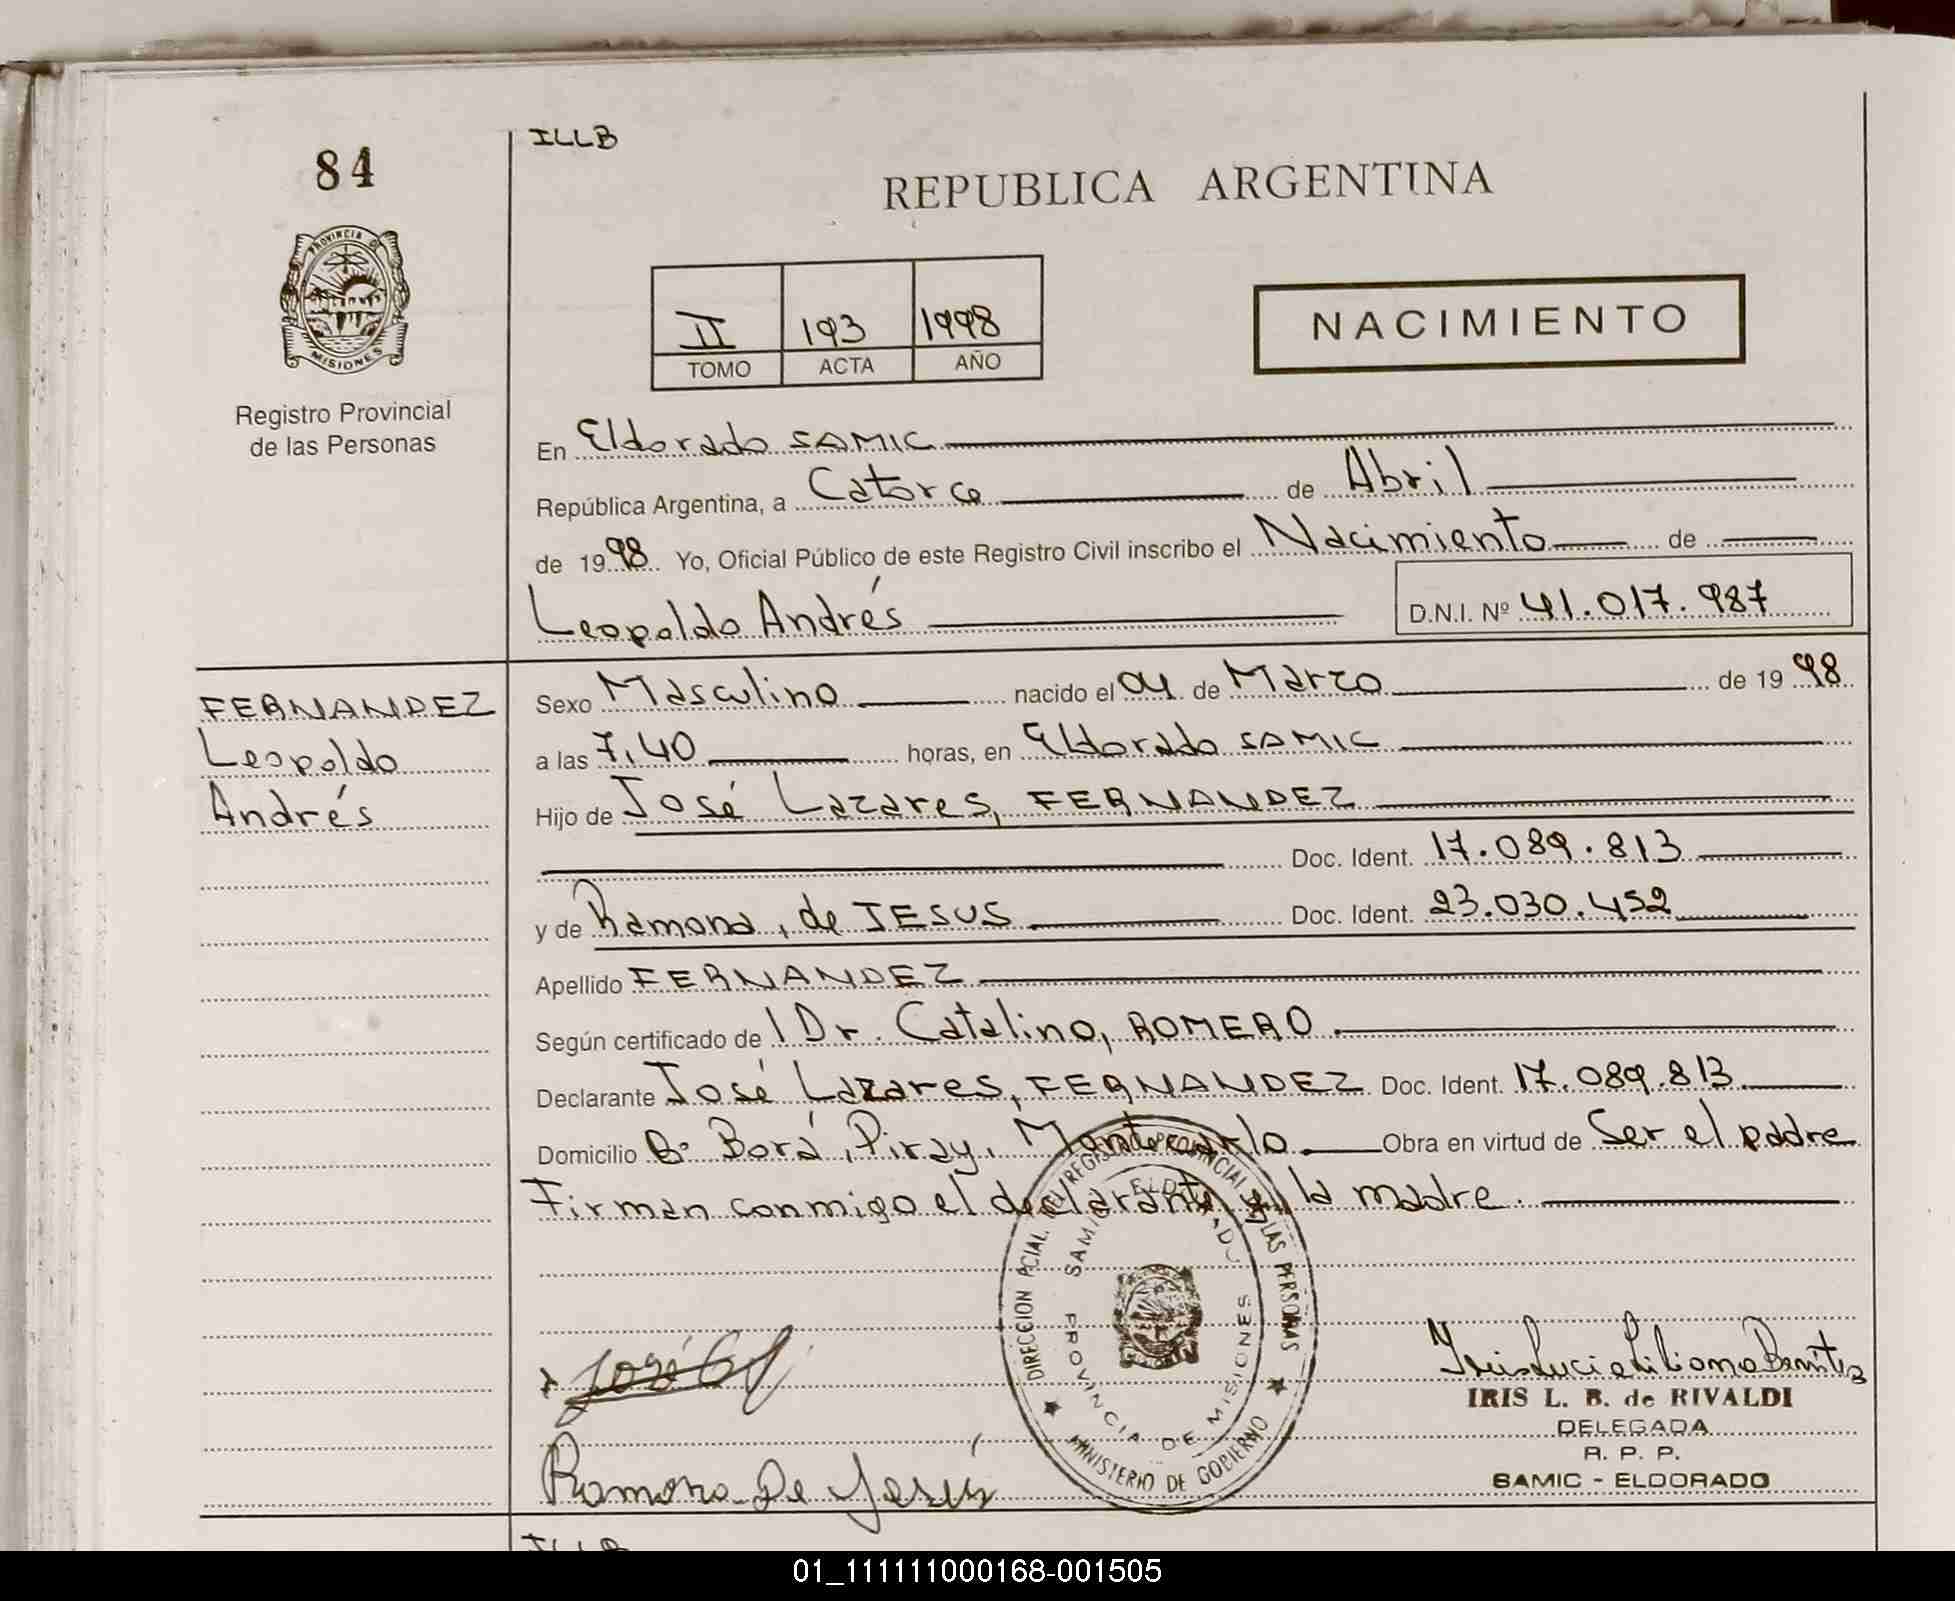 84
ILLB
REPUBLICA ARGENTINA
PROVINCIA DE
MISIONES
Registro Provincial
de las Personas
II 193 1998
TOMO ACTA AÑO
NACIMIENTO
En Eldorado SAMIC
República Argentina, a Catorce de Abril
de 1998 Yo, Oficial Público de este Registro Civil inscribo el Nacimiento de
Leopoldo Andrés D.N.I. Nº 41.017.987
FERNANDEZ
Leopoldo
Andrés
Sexo Masculino nacido el 04 de Marzo de 1998
a las 7,40 horas, en Eldorado SAMIC
Hijo de José Lazares, FERNANDEZ
Doc. Ident. 17.089.813
y de Ramona, de JESUS Doc. Ident. 23.030.452
Apellido FERNANDEZ
Según certificado de l Dr. Catalino, ROMERO.
Declarante José Lazares, FERNANDEZ Doc. Ident. 17.089.813
Domicilio Bº Borá, Piray, Montecarlo Obra en virtud de Ser el padre
Firman conmigo el declarante y la madre.
DIRECCION PCIAL. DEL REGISTRO PROVINCIAL DE LAS PERSONAS
SAMIC ELDORADO
PROVINCIA DE MISIONES
MINISTERIO DE GOBIERNO
José
Ramona De Jesús
Iris Lucia Liliana Benítez
IRIS L. B. de RIVALDI
DELEGADA
R. P. P.
SAMIC - ELDORADO
ILLB
01_111111000168-001505